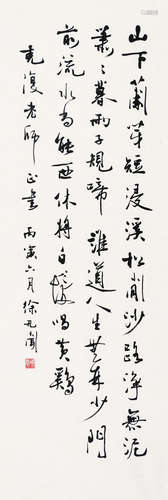 山下蘭芽短浸溪松間沙路淨無泥
蕭々暮雨子規啼誰道人生無再少門
前流水尚能西休將白髮唱黃鷄
克復老師正書丙寅六月徐无聞